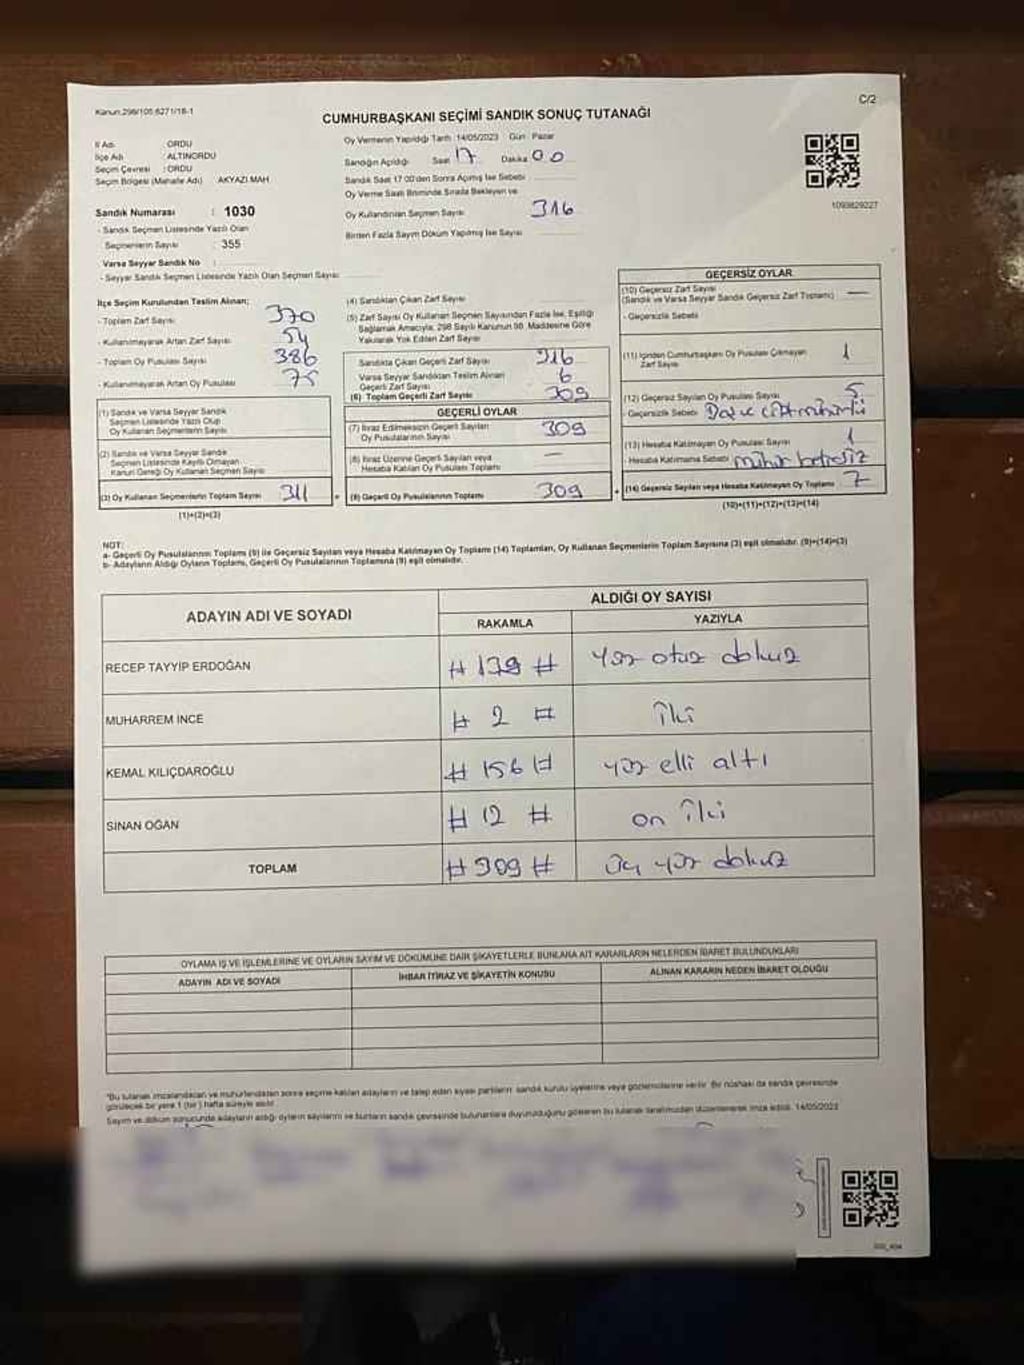 Kanun:298/105,6271/18-1
C/2
CUMHURBAŞKANI SEÇİMİ SANDIK SONUÇ TUTANAĞI
İl Adı : ORDU
İlçe Adı : ALTINORDU
Seçim Çevresi : ORDU
Seçim Bölgesi (Mahalle Adı) AKYAZI MAH
Sandık Numarası : 1030
- Sandık Seçmen Listesinde Yazılı Olan
Seçmenlerin Sayısı : 355
Varsa Seyyar Sandık No :
- Seyyar Sandık Seçmen Listesinde Yazılı Olan Seçmen Sayısı:
Oy Vermenin Yapıldığı Tarih :14/05/2023 Gün : Pazar
Sandığın Açıldığı Saat 17 Dakika 00
Sandık Saat 17:00'den Sonra Açılmış İse Sebebi
Oy Verme Saati Bitiminde Sırada Bekleyen ve
Oy Kullandırılan Seçmen Sayısı 316
Birden Fazla Sayım Döküm Yapılmış İse Sayısı
1093829227
İlçe Seçim Kurulundan Teslim Alınan;
- Toplam Zarf Sayısı 370
- Kullanılmayarak Artan Zarf Sayısı 54
- Toplam Oy Pusulası Sayısı 386
- Kullanılmayarak Artan Oy Pusulası 75
(1) Sandık ve Varsa Seyyar Sandık
Seçmen Listesinde Yazılı Olup
Oy Kullanan Seçmenlerin Sayısı
(2) Sandık ve Varsa Seyyar Sandık
Seçmen Listesinde Kayıtlı Olmayan
Kanun Gereği Oy Kullanan Seçmen Sayısı
(3) Oy Kullanan Seçmenlerin Toplam Sayısı 311
(1)+(2)=(3)
(4) Sandıktan Çıkan Zarf Sayısı
(5) Zarf Sayısı Oy Kullanan Seçmen Sayısından Fazla İse, Eşitliği
Sağlamak Amacıyla, 298 Sayılı Kanunun 98. Maddesine Göre
Yakılarak Yok Edilen Zarf Sayısı
Sandıkta Çıkan Geçerli Zarf Sayısı 316
Varsa Seyyar Sandıktan Teslim Alınan
Geçerli Zarf Sayısı 6
(6) Toplam Geçerli Zarf Sayısı 309
GEÇERLİ OYLAR
(7) İtiraz Edilmeksizin Geçerli Sayılan
Oy Pusulalarının Sayısı 309
(8) İtiraz Üzerine Geçerli Sayılan veya
Hesaba Katılan Oy Pusulası Toplamı —
(9) Geçerli Oy Pusulalarının Toplamı 309
GEÇERSİZ OYLAR
(10) Geçersiz Zarf Sayısı —
(Sandık ve Varsa Seyyar Sandık Geçersiz Zarf Toplamı)
- Geçersizlik Sebebi
(11) İçinden Cumhurbaşkanı Oy Pusulası Çıkmayan
Zarf Sayısı 1
(12) Geçersiz Sayılan Oy Pusulası Sayısı 5
- Geçersizlik Sebebi
(13) Hesaba Katılmayan Oy Pusulası Sayısı 1
- Hesaba Katılmama Sebebi
(14) Geçersiz Sayılan veya Hesaba Katılmayan Oy Toplamı 7
(10)+(11)+(12)+(13)=(14)
NOT:
a- Geçerli Oy Pusulalarının Toplamı (9) ile Geçersiz Sayılan veya Hesaba Katılmayan Oy Toplamı (14) Toplamları, Oy Kullanan Seçmenlerin Toplam Sayısına (3) eşit olmalıdır. (9)+(14)=(3)
b- Adayların Aldığı Oyların Toplamı, Geçerli Oy Pusulalarının Toplamına (9) eşit olmalıdır.
ADAYIN ADI VE SOYADI
ALDIĞI OY SAYISI
RAKAMLA YAZIYLA
RECEP TAYYİP ERDOĞAN # 139 # yüz otuz dokuz
MUHARREM İNCE # 2 # İki
KEMAL KILIÇDAROĞLU # 156 # yüz elli altı
SİNAN OĞAN # 12 # on İki
TOPLAM # 309 # üç yüz dokuz
OYLAMA İŞ VE İŞLEMLERİNE VE OYLARIN SAYIM VE DÖKÜMÜNE DAİR ŞİKAYETLERLE BUNLARA AİT KARARLARIN NELERDEN İBARET BULUNDUKLARI
ADAYIN ADI VE SOYADI İHBAR İTİRAZ VE ŞİKAYETİN KONUSU ALINAN KARARIN NEDEN İBARET OLDUĞU
*Bu tutanak imzalandıktan ve mühürlendikten sonra seçime katılan adayların ve talep eden siyasi partilerin sandık kurulu üyelerine veya gözlemcilerine verilir. Bir nüshası da sandık çevresinde
görülecek bir yere 1 (bir) hafta süreyle asılır.
Sayım ve döküm sonucunda adayların aldığı oyların sayılarını ve bunların sandık çevresinde bulunanlara duyurulduğunu gösteren bu tutanak tarafımızdan düzenlenerek imza edildi. 14/05/2023